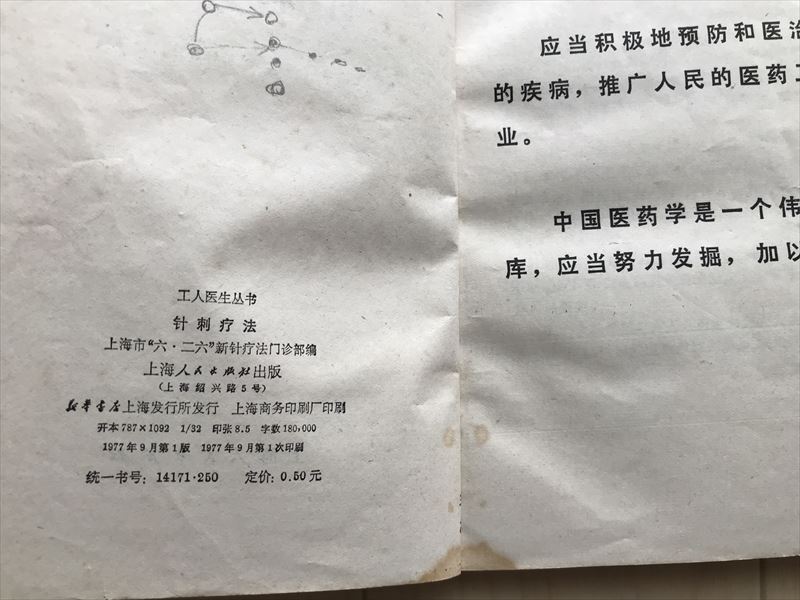 工人医生丛书
针刺疗法
上海市“六·二六”新针疗法门诊部编
上海人民出版社出版
(上海绍兴路5号)
新华书店上海发行所发行 上海商务印刷厂印刷
开本 787×1092 1/32 印张 8.5 字数 180,000
1977年9月第1版 1977年9月第1次印刷
统一书号: 14171·250 定价: 0.50 元
应当积极地预防和医治
的疾病，推广人民的医药
业。
中国医药学是一个伟
库，应当努力发掘，加以